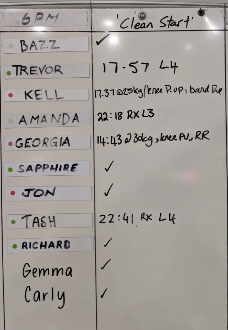 6PM 'Clean Start'
BAZZ ✓
TREVOR 17:57 L4
KELL 17:37 @25kg/knee P.up, band
AMANDA 22:18 RX L3
GEORGIA 14:43 @30kg, knee PU, RR
SAPPHIRE ✓
JON ✓
TASH 22:41 RX L4
RICHARD ✓
Gemma ✓
Carly ✓